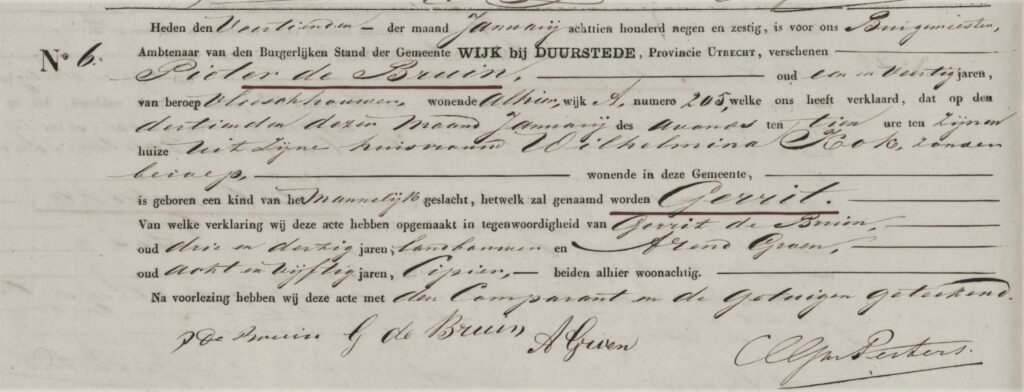 Heden den Veertienden der maand Januarij achttien honderd negen en zestig, is voor ons Burgemeester,
No 6. Ambtenaar van den Burgerlijken Stand der Gemeente WIJK bij DUURSTEDE, Provincie UTRECHT, verschenen
Pieter de Bruin, oud een en Veertig jaren,
van beroep Vleeschhouwer, wonende Alhier, wijk A, numero 205, welke ons heeft verklaard, dat op den
dertienden dezer Maand Januarij des avonds ten tien ure ten zijnen
huize uit zijne huisvrouw Wilhelmina Kok, zonder
beroep, wonende in deze Gemeente,
is geboren een kind van het Mannelijk geslacht, hetwelk zal genaamd worden Gerrit.
Van welke verklaring wij deze acte hebben opgemaakt in tegenwoordigheid van Gerrit de Bruin,
oud drie en dertig jaren, Landbouwer en Arend Groen,
oud Acht en vijftig jaren, Cipier, beiden alhier woonachtig.
Na voorlezing hebben wij deze acte met den Comparant en de Getuigen geteekend.
P de Bruin G de Bruin A Groen